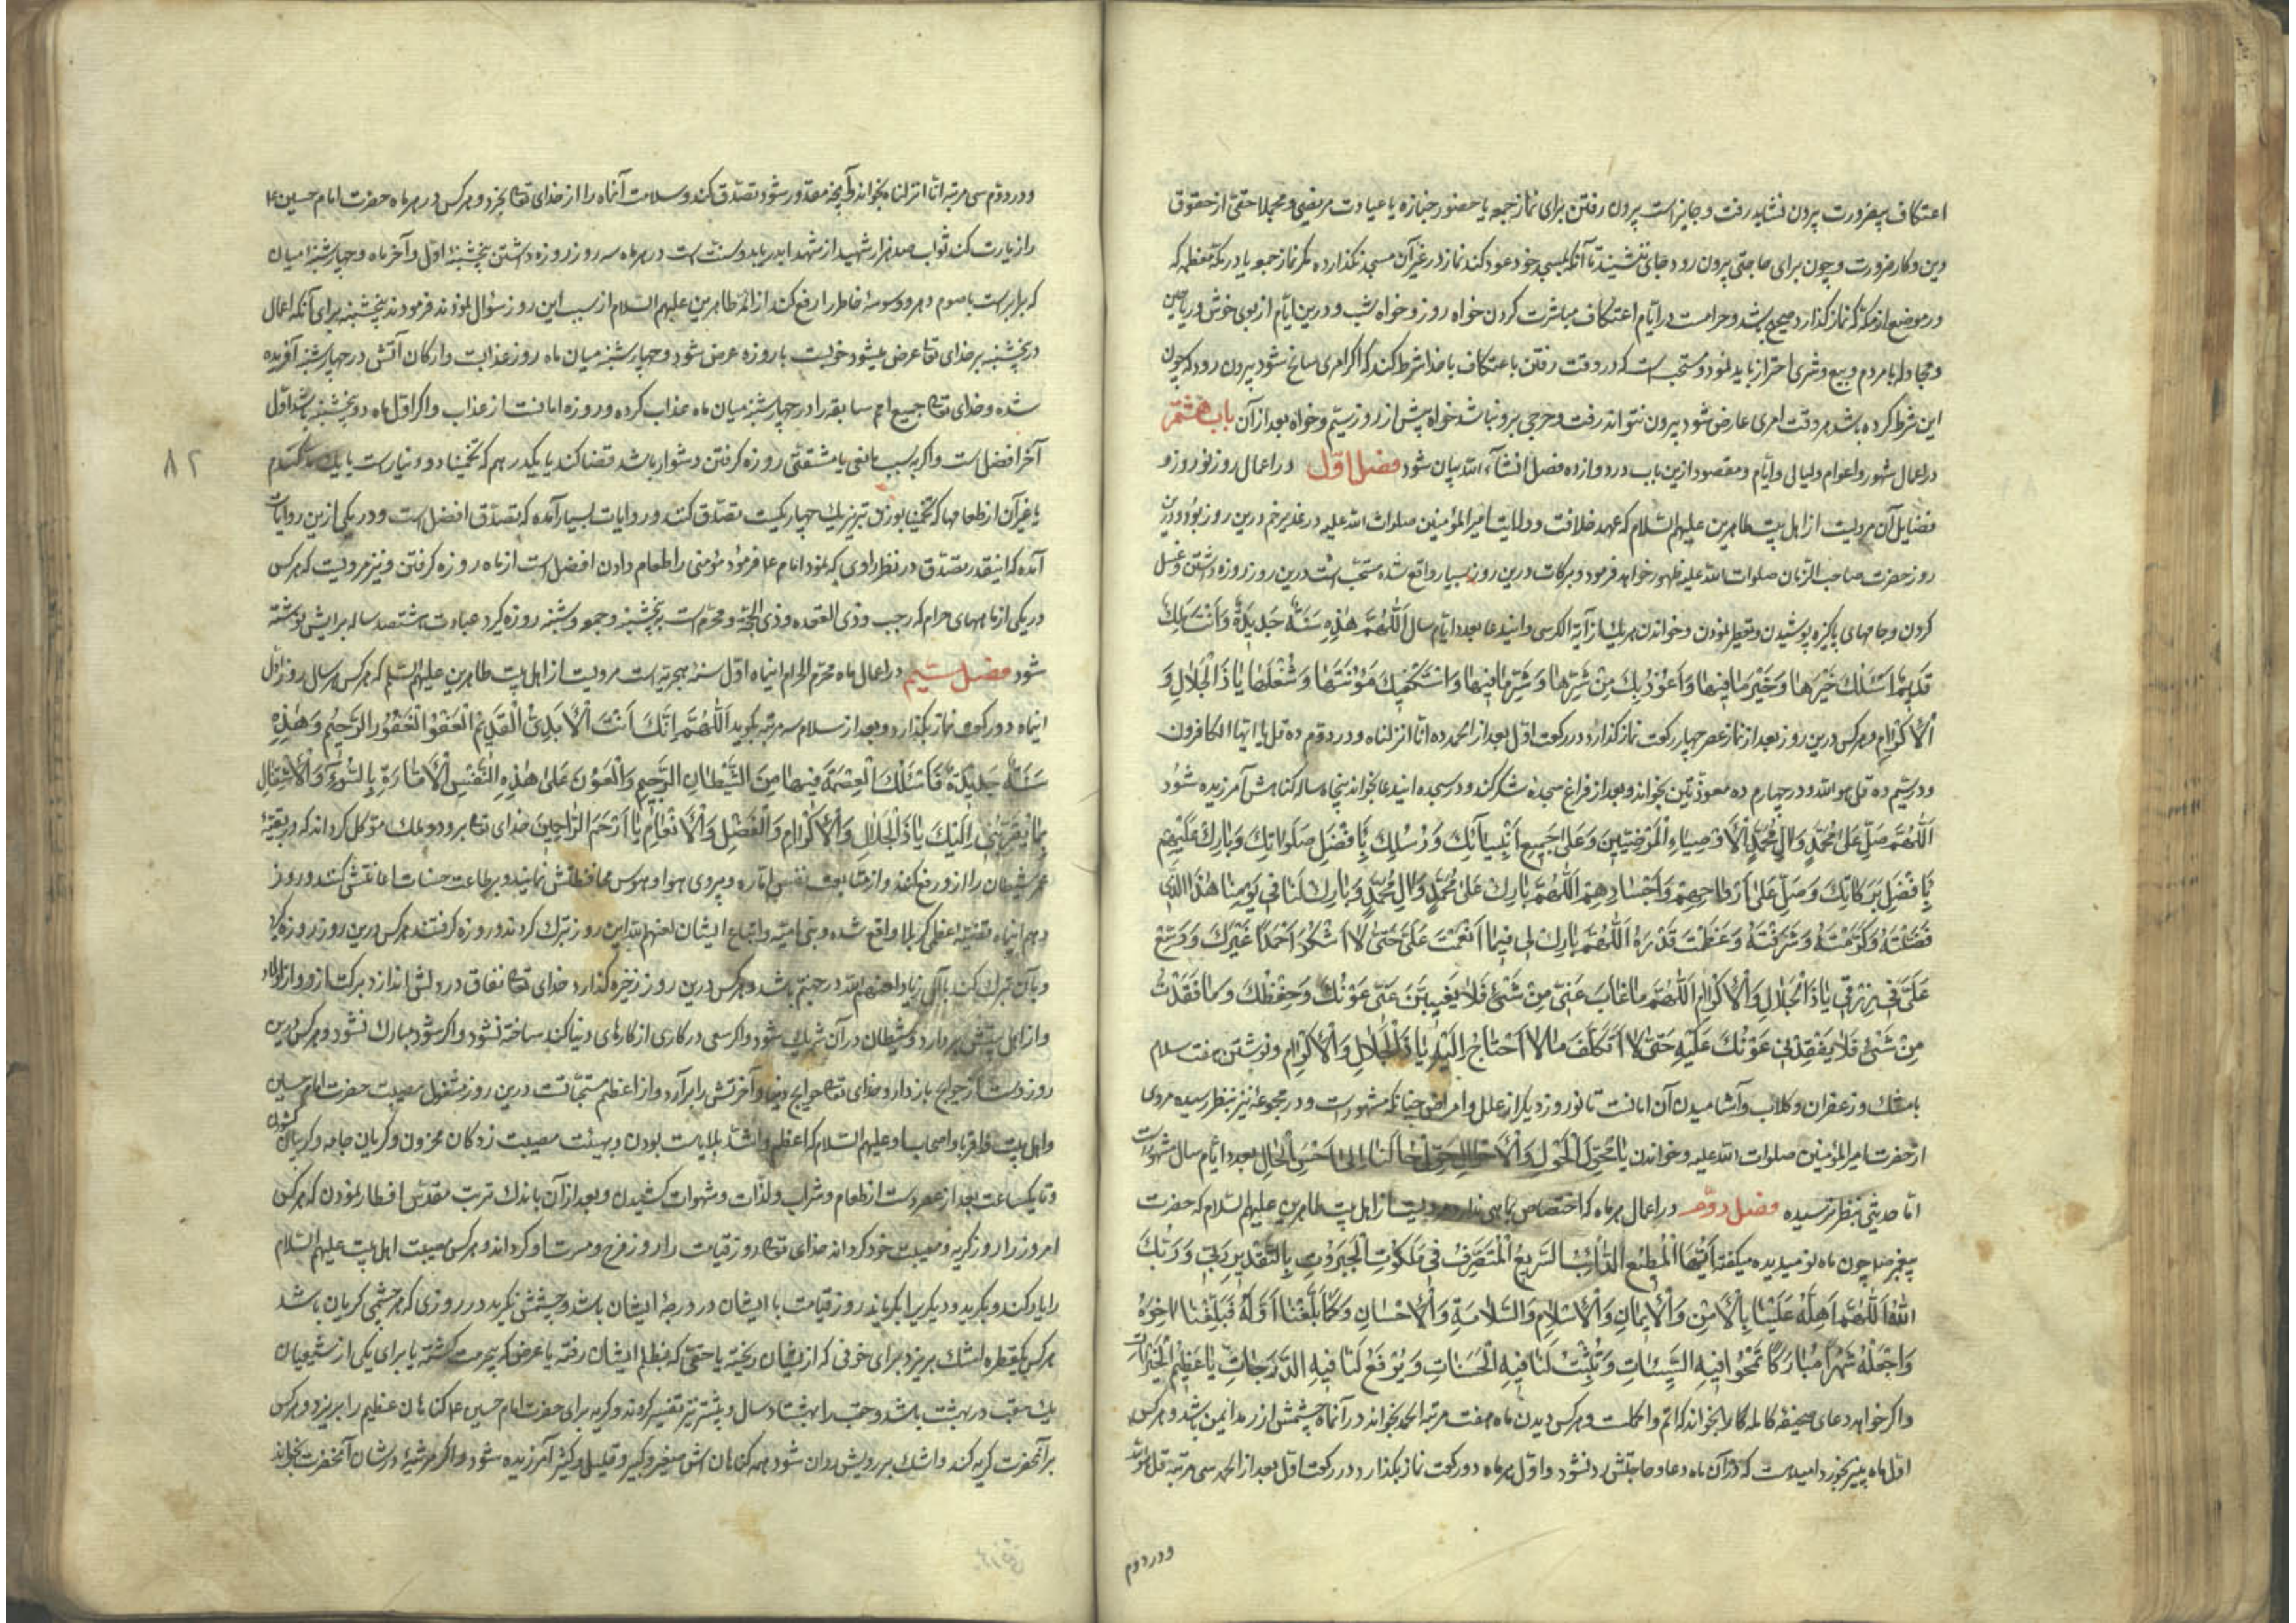 اعتکاف بیضرورت بیرون نشاید رفت و جایز است بیرون رفتن برای نماز جمعه یا حضور جنازه یا عیادت مریضی و مجملا حقی از حقوق
دین و کار ضرورت و چون برای حاجتی بیرون رود جای ننشیند تا آنکه بمسجد خود عود کند نماز در غیر آن مسجد نگذارد مگر نماز جمعه یا در مکه معظمه که
در هر موضع از مکه که نماز گذارد صحیح باشد و حرامست در ایام اعتکاف مباشرت کردن خواه روز و خواه شب و درین ایام از بوی خوش و ریاحین
و مجادله با مردم و بیع و شری احتراز باید نمود و مستحب است که در وقت رفتن باعتکاف با خدا شرط کند که اگر امری سانح شود بیرون رود که چون
این شرط کرده باشد هر وقت امری عارض شود بیرون تواند رفت و حرجی برو نباشد خواه پیش از روز سیم و خواه بعد از آن باب هشتم
در اعمال شهور و اعوام و لیالی و ایام و مقصود ازین باب در دوازده فصل انشآء الله بیان شود فصل اول در اعمال روز نوروز و
فضایل آن مرویست از اهل بیت طاهرین علیهم السلام که عهد خلافت و ولایت امیر المؤمنین صلوات الله علیه در غدیر خم درین روز بود و درین
روز حضرت صاحب الزمان صلوات الله علیه ظهور خواهد فرمود و برکات درین روز بسیار واقع شده مستحب است درین روز روزه داشتن و غسل
کردن و جامهای پاکیزه پوشیدن و تعطر نمودن و خواندن هر یک از آیة الکرسی و ایندعا بعدد ایام سال اَللّٰهُمَّ هٰذِهِ سَنَةٌ جَدِیدَةٌ وَاَنْتَ مَلِكٌ
قَدِیمٌ اَسْئَلُكَ خَیْرَهٰا وَخَیْرَ مٰا فِیهٰا وَاَعُوذُ بِكَ مِنْ شَرِّهٰا وَشَرِّ مٰا فِیهٰا وَاسْتَكْفِیكَ مَؤُنَتَهٰا وَشُغْلَهٰا یٰا ذَا الْجَلٰالِ وَ
اْلاِكْرٰامِ و هر کس درین روز بعد از نماز عصر چهار رکعت نماز گذارد در رکعت اول بعد از الحمد ده انا انزلناه و در دوم ده قل یا ایها الکافرون
و در سیم ده قل هو الله و در چهارم ده معوذتین بخواند و بعد از فراغ سجده شکر کند و در سجده ایندعا بخواند پنجاه ساله گناهش آمرزیده شود
اَللّٰهُمَّ صَلِّ عَلٰی مُحَمَّدٍ وَاٰلِ مُحَمَّدٍ اْلاَوْصِیٰاءِ الْمَرْضِیِّینَ وَعَلٰی جَمِیعِ اَنْبِیٰآئِكَ وَرُسُلِكَ بِاَفْضَلِ صَلَوٰاتِكَ وَبٰارِكْ عَلَیْهِمْ
بِاَفْضَلِ بَرَكٰاتِكَ وَصَلِّ عَلٰی اَرْوٰاحِهِمْ وَاَجْسٰادِهِمْ اَللّٰهُمَّ بٰارِكْ عَلٰی مُحَمَّدٍ وَاٰلِ مُحَمَّدٍ وَبٰارِكْ لَنٰا فِی یَوْمِنٰا هٰذَا الَّذِی
فَضَّلْتَهُ وَكَرَّمْتَهُ وَشَرَّفْتَهُ وَعَظَّمْتَ قَدْرَهُ اَللّٰهُمَّ بٰارِكْ لِی فِیمٰا اَنْعَمْتَ عَلَیَّ حَتّٰی لاٰ اَشْكُرَ اَحَدًا غَیْرَكَ وَوَسِّعْ
عَلَیَّ فِی رِزْقِی یٰا ذَا الْجَلٰالِ وَاْلاِكْرٰامِ اَللّٰهُمَّ مٰا غٰابَ عَنِّی مِنْ شَیْءٍ فَلاٰ یَغِیبَنَّ عَنِّی عَوْنُكَ وَحِفْظُكَ وَمٰا فَقَدْتُ
مِنْ شَیْءٍ فَلاٰ یَفْقِدْنِی عَوْنُكَ عَلَیْهِ حَتّٰی لاٰ اَتَكَلَّفَ مٰا لاٰ اَحْتٰاجُ اِلَیْهِ یٰا ذَا الْجَلٰالِ وَاْلاِكْرٰامِ و نوشتن هفت سلام
بامشک و زعفران و گلاب و آشامیدن آن امانست تا نوروز دیگر از علل و امراض چنانکه مشهور است و در مجموعه نیز بنظر رسیده مروی
از حضرت امیر المؤمنین صلوات الله علیه و خواندن یٰا مُحَوِّلَ الْحَوْلِ وَاْلاَحْوٰالِ حَوِّلْ حٰالَنٰا اِلٰی اَحْسَنِ الْحٰالِ بعدد ایام سال مشهور است
اما حدیثی بنظر نرسیده فصل دوم در اعمال هر ماه که اختصاص بماهی ندارد مرویست از اهل بیت طاهرین علیهم السلام که حضرت
پیغمبر ص چون ماه نو میدیده میگفته اَیُّهَا الْمُطِیعُ الدّٰائِبُ السَّرِیعُ الْمُتَصَرِّفُ فِی مَلَكُوتِ الْجَبَرُوتِ بِالتَّقْدِیرِ رَبِّی وَرَبُّكَ
اللّٰهُ اَللّٰهُمَّ اَهِلَّهُ عَلَیْنٰا بِاْلاَمْنِ وَاْلاِیمٰانِ وَاْلاِسْلاٰمِ وَالسَّلاٰمَةِ وَاْلاِحْسٰانِ وَكَمٰا بَلَّغْتَنٰا اَوَّلَهُ فَبَلِّغْنٰا اٰخِرَهُ
وَاجْعَلْهُ شَهْرًا مُبٰارَكًا تَمْحُوا فِیهِ السَّیِّئٰاتِ وَتُثْبِتُ لَنٰا فِیهِ الْحَسَنٰاتِ وَتَرْفَعُ لَنٰا فِیهِ الدَّرَجٰاتِ یٰا عَظِیمَ الْخَیْرٰاتِ
و اگر خواهد دعای صحیفه کامله بخواند که اتم و اکملست و هر کس دیدن ماه هفت مرتبه الحمد بخواند در آنماه چشمش از رمد ایمن باشد و هر کس
اول ماه پنیر بخورد امید هست که در آن ماه دعا و حاجتش رد نشود و اول هر ماه دو رکعت نماز بگذارد در رکعت اول بعد از الحمد سی مرتبه قل هو الله
و در دوم
و در دوم سی مرتبه انا انزلناه بخواند و آنچه مقدور شود تصدق کند و سلامت آنماه را از خدای تعالی بخرد و هر کس در هر ماه حضرت امام حسین ع
را زیارت کند ثواب صد هزار شهید از شهدا بدر یابد و سنت است در هر ماه سه روز روزه داشتن پنجشنبهٔ اول و آخر ماه و چهارشنبهٔ میان
که برابر است با صوم دهر و وسوسهٔ خاطر را رفع کند از ائمه طاهرین علیهم السلام از سبب این روز سؤال نمودند فرمودند پنجشنبه برای آنکه اعمال
در پنجشنبه بر خدای تعالی عرض میشود خوبست با روزه عرض شود و چهارشنبه میان ماه روز عذابست و ارکان آتش در چهارشنبه آفریده
شده و خدای تعالی جمیع امم سابقه را در چهارشنبه میان ماه عذاب کرده و روزه امانست از عذاب و اگر اول ماه دو پنجشنبه باشد اول
آخر افضل است و اگر بسبب مانعی یا مشقتی روزه گرفتن دشوار باشد قضا کند یا یکدرهم که تخمینا دو دینار است یا یک مد گندم
۸۲
یا غیر آن از طعامها که تخمینا بوزن تبریز یک چهار یکیست تصدق کند و روایات بسیار آمده که تصدق افضل است و در یکی ازین روایات
آمده که اینقدر تصدق در نظر راوی کم نمود امام ع فرمود مؤمنی را طعام دادن افضل است از ماه روزه گرفتن و نیز مرویست که هر کس
در یکی از ماههای حرام که رجب و ذی القعده و ذی الحجة و محرم است پنجشنبه و جمعه و شنبه روزه گیرد عبادت هشتصد ساله برایش نوشته
شود فصل سیم در اعمال ماه محرم الحرام اینماه اول سنهٔ هجریه است مرویست از اهل بیت طاهرین علیهم السلام که هر کس هر سال روز اول
اینماه دو رکعت نماز بگذارد و بعد از سلام سه مرتبه بگوید اَللّٰهُمَّ اِنَّكَ اَنْتَ اْلاَبَدِیُّ الْقَدِیمُ الْعَفُوُّ الْغَفُورُ الرَّحِیمُ وَهٰذِهِ
سَنَةٌ جَدِیدَةٌ فَاَسْئَلُكَ الْعِصْمَةَ فِیهٰا مِنَ الشَّیْطٰانِ الرَّجِیمِ وَالْعَوْنَ عَلٰی هٰذِهِ النَّفْسِ اْلاَمّٰارَةِ بِالسُّوۤءِ وَاْلاِشْتِغٰالَ
بِمٰا یُقَرِّبُنِی اِلَیْكَ یٰا ذَا الْجَلٰالِ وَاْلاِكْرٰامِ وَالْفَضْلِ وَاْلاِنْعٰامِ یٰا اَرْحَمَ الرّٰاحِمِینَ خدای تعالی برو دو ملک موکل گرداند که در بقیهٔ
عمر شیطان را ازو رفع کنند و از متابعت نفس اماره و پیروی هوا و هوس محافظتش نمایند و بر طاعت حسنات اعانتش کنند و روز
دهم اینماه فتنهٔ عظمی کربلا واقع شده و بنی امیه و اتباع ایشان لعنهم الله این روز تبرک کردند و روزه گرفتند هر کس درین روز روزه گیرد
و بآن تبرک کند با آل زیاد لعنهم الله در جهنم باشد و هر کس درین روز ذخیره گذارد خدای تعالی نفاق در دلش اندازد برکت ازو و از اولاد
و از اهل بیتش بردارد و شیطان در آن شریک شود و اگر سعی در کاری از کارهای دنیا کند ساخته نشود و اگر شود مبارک نشود و هر کس درین
روز دست از حوایج باز دارد خدای تعالی حوایج دنیا و آخرتش را برآرد و از اعظم مستحبات درین روز مشغول مصیبت حضرت امام حسین
و اهل بیت و اقربا و اصحاب او علیهم السلام که اعظم و اشد بلایاست بودن و بهیئت مصیبت زدگان محزون و گریان جامه و گریبان گشودن
و تا یکساعت بعد از عصر دست از طعام و شراب و لذات و شهوات کشیدن و بعد از آن باندک تربت مقدس افطار نمودن که هر کس
امروز را روز گریه و مصیبت خود گرداند خدای تعالی روز قیامت را روز فرح و مسرت او گرداند و هر کس مصیبت اهل بیت علیهم السلام
را یاد کند و بگرید و دیگریرا بگریاند روز قیامت با ایشان در درجهٔ ایشان باشد و چشمش نگرید در روزی که هر چشمی گریان باشد
هر کس یکقطره اشک بریزد برای خونی که از ایشان ریخته یا حقی که بظلم ایشان رفته یا عرضی که بیحرمت گشته یا برای یکی از شیعیان
یک حقب در بهشت باشد و حقب را بهشتاد سال و بیشتر نیز تفسیر کردند و گریه برای حضرت امام حسین ع گناهان عظیم را بریزد و هر کس
بر آنحضرت گریه کند و اشک بر رویش روان شود همه گناهان اش صغیر و کبیر و قلیل و کثیر آمرزیده شود و اگر مرثیهٔ در شان آنحضرت بخواند